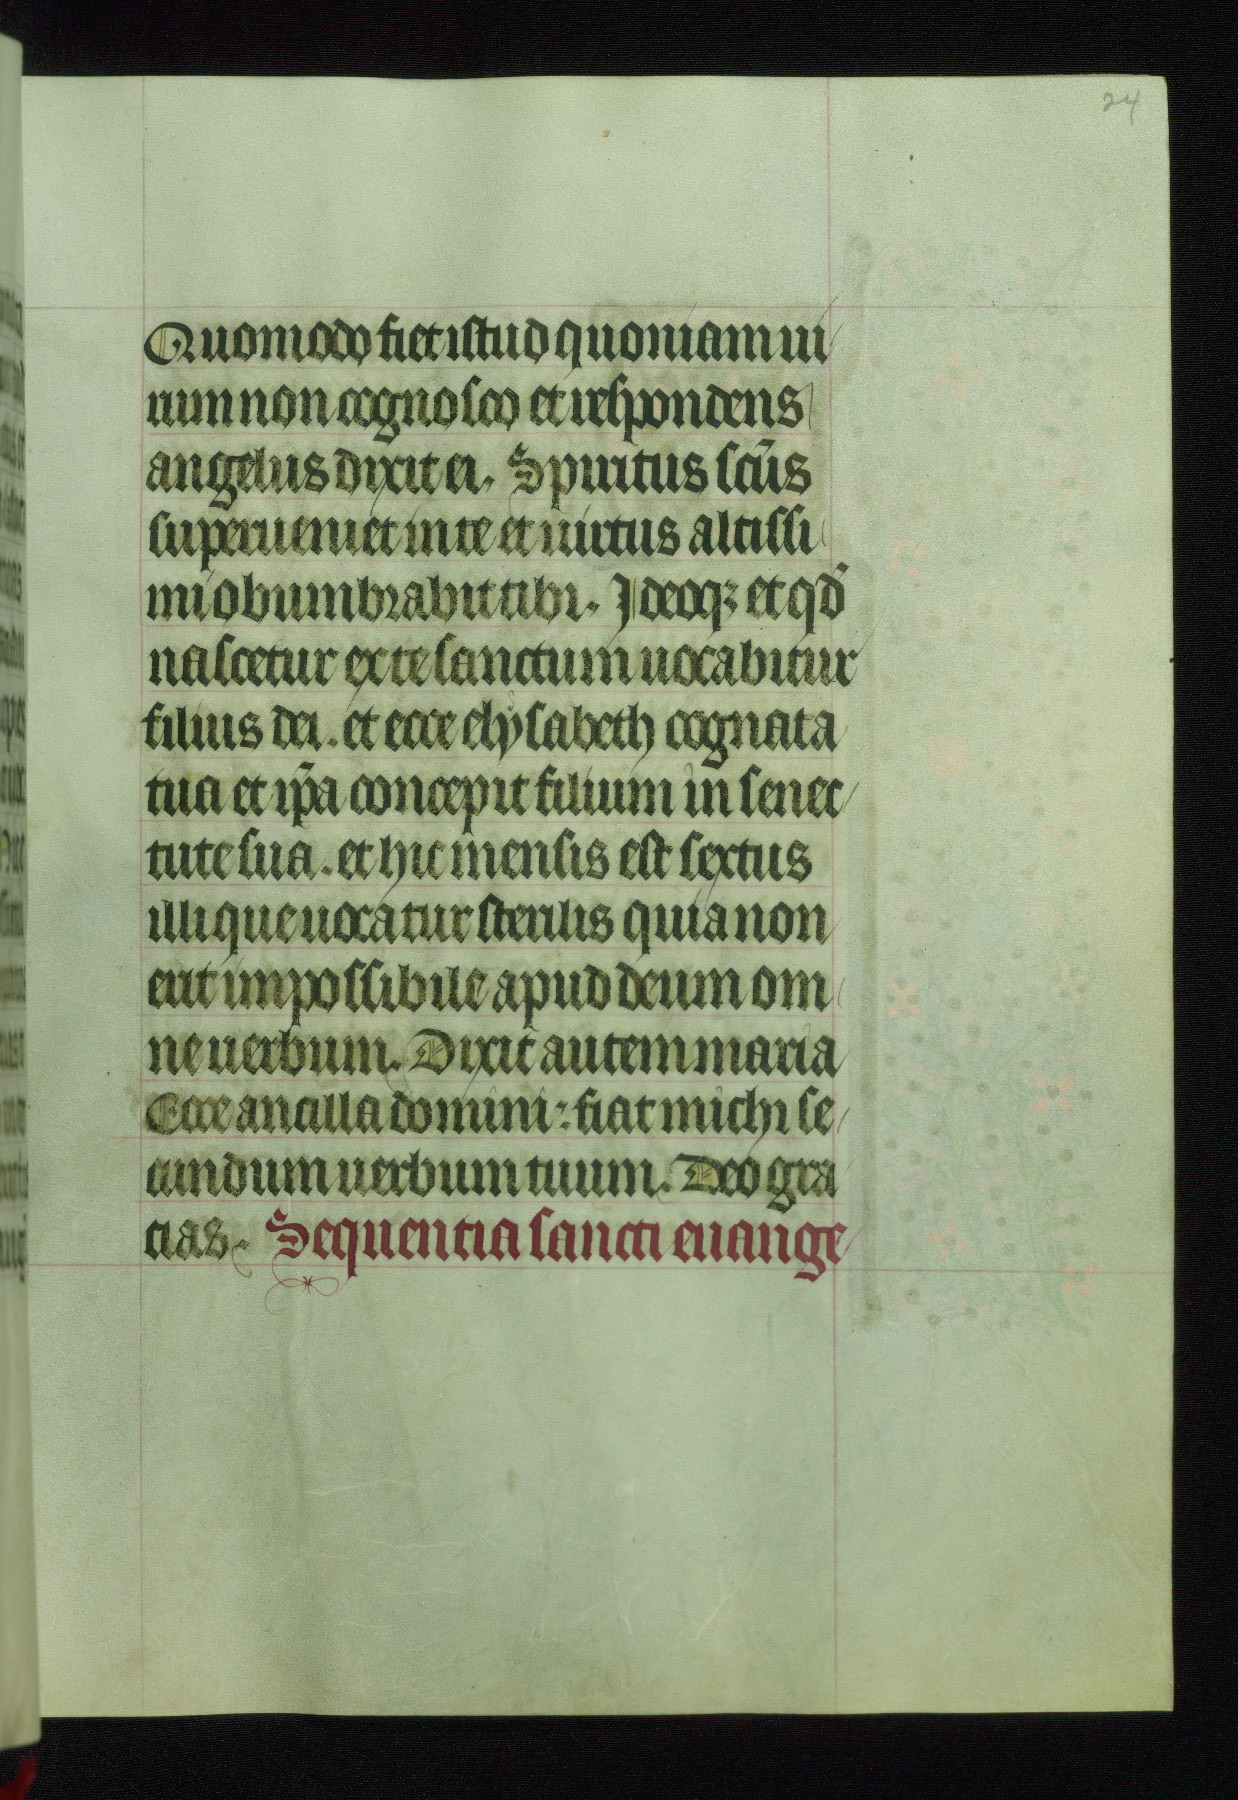 24
Quomodo fiet istud quoniam ui
rum non cognosco et respondens
angelus dixit ei. Spiritus scūs
superueniet in te et uirtus altissi
mi obumbrabit tibi. Ideoqꝫ et qd̄
nascetur ex te sanctum uocabitur
filius dei. et ecce elysabeth cognata
tua et ip̄a concepit filium in senec
tute sua. et hic mensis est sextus
illi que uocatur sterilis quia non
erit impossibile apud deum om
ne uerbum. Dixit autem maria
Ecce ancilla domini: fiat michi se
cundum uerbum tuum. Deo gra
cias. Sequentia sancti euange